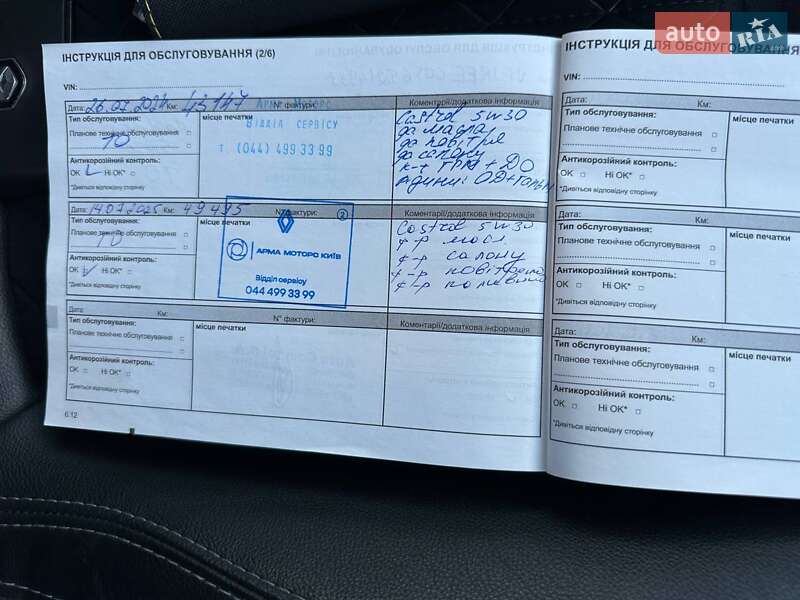 auto RIA
ІНСТРУКЦІЯ ДЛЯ ОБСЛУГОВУВАННЯ (2/6)
VIN:
Дата: 26.07.2024 Км: 43147 N° фактури:
Коментарії/додаткова інформація
Тип обслуговування:
Планове технічне обслуговування
ТО
Антикорозійний контроль:
OK Ні OK*
*Дивіться відповідну сторінку
місце печатки
АРМА МОТОРС
ВІДДІЛ СЕРВІСУ
т. (044) 499 33 99
Castrol 5w30
Дата: 14.07.2025 Км: 49495 N° фактури:
Коментарії/додаткова інформація
Тип обслуговування:
Планове технічне обслуговування
ТО
Антикорозійний контроль:
OK Ні OK*
*Дивіться відповідну сторінку
місце печатки
2
АРМА МОТОРС КИЇВ
Відділ сервісу
044 499 33 99
Castrol 5w30
ф-р масл
ф-р салону
ф-р
ф-р
Дата: Км: N° фактури:
Коментарії/додаткова інформація
Тип обслуговування:
Планове технічне обслуговування
Антикорозійний контроль:
OK Ні OK*
*Дивіться відповідну сторінку
місце печатки
6.12
ІНСТРУКЦІЯ ДЛЯ ОБСЛУГОВУВАННЯ
VIN:
Дата: Км:
Тип обслуговування:
Планове технічне обслуговування
Антикорозійний контроль:
OK Ні OK*
*Дивіться відповідну сторінку
місце печатки
Дата: Км:
Тип обслуговування:
Планове технічне обслуговування
Антикорозійний контроль:
OK Ні OK*
*Дивіться відповідну сторінку
місце печатки
Дата: Км:
Тип обслуговування:
Планове технічне обслуговування
Антикорозійний контроль:
OK Ні OK*
*Дивіться відповідну сторінку
місце печатки